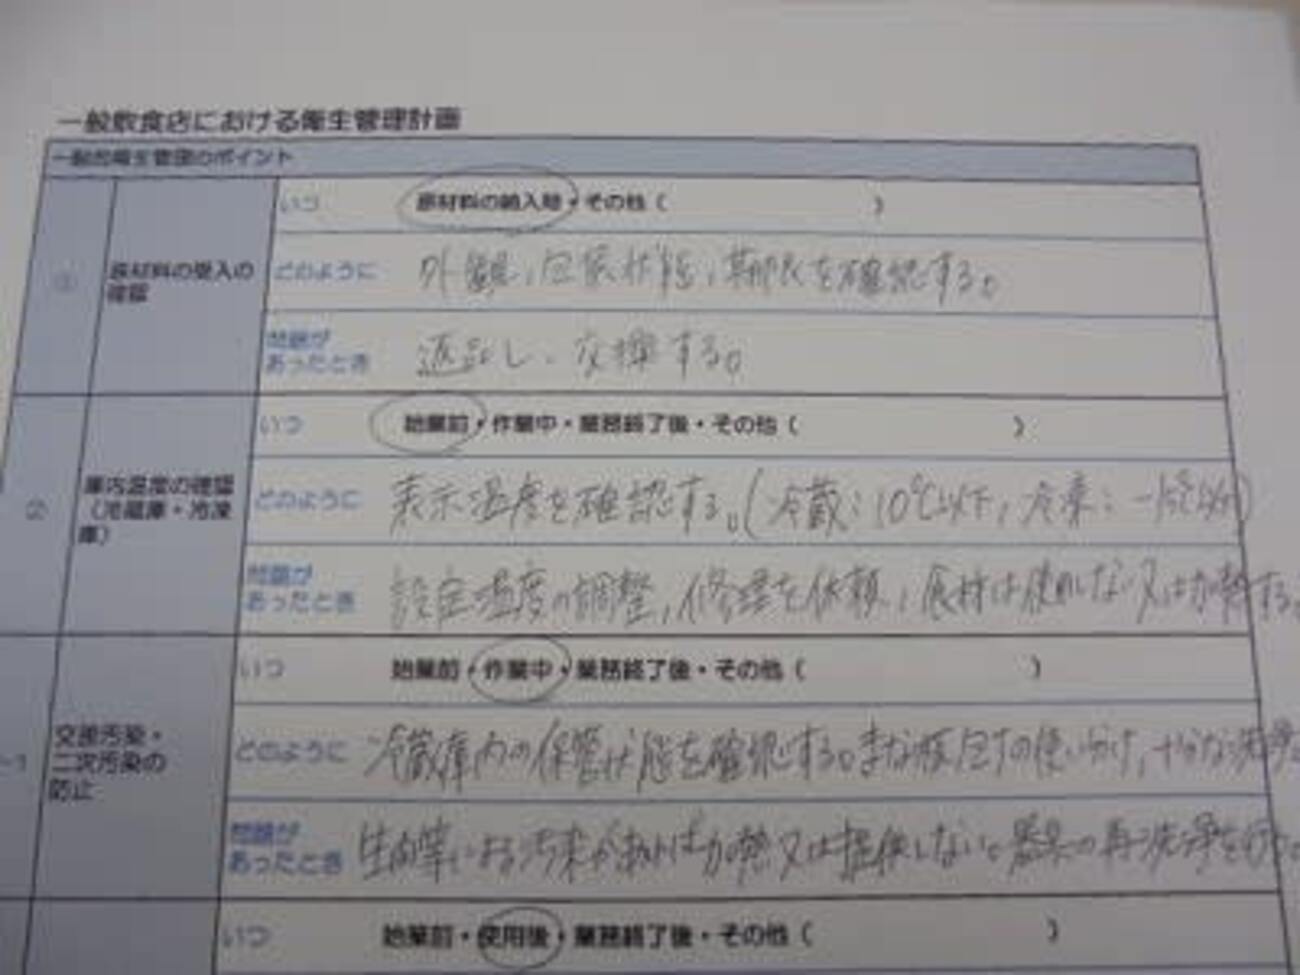 一般飲食店における衛生管理計画
一般的衛生管理のポイント
①
原材料の受入の
確認
いつ
原材料の納入時・その他（　　　）
どのように
外観、包装状態、期限を確認する。
問題が
あったとき
返品し、交換する。
②
庫内温度の確認
（冷蔵庫・冷凍
庫）
いつ
始業前・作業中・業務終了後・その他（　　　）
どのように
表示温度を確認する。(冷蔵：10℃以下、冷凍：-15℃以下)
問題が
あったとき
設定温度の調整、修理を依頼、食材は使用しない又は加熱する。
-1
交差汚染・
二次汚染の
防止
いつ
始業前・作業中・業務終了後・その他（　　　）
どのように
冷蔵庫内の保管状態を確認する。まな板、包丁の使い分け、十分な洗浄
問題が
あったとき
生肉等による汚染があれば加熱又は提供しない。器具の再洗浄を行う。
いつ
始業前・使用後・業務終了後・その他（　　　）